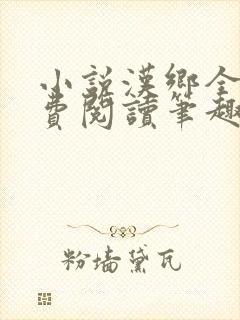 小説漢鄉全
費閱讀筆趣
粉墙黛瓦